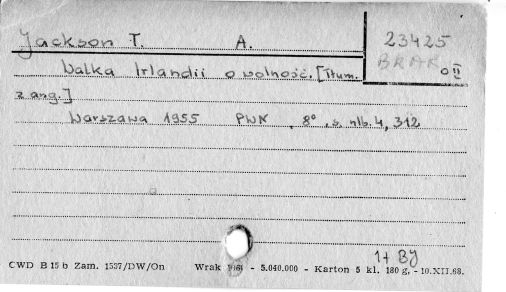 Jackson T. A.
23425
BRAK
o II
Walka Irlandii o wolność. [Tłum.
z ang.]
Warszawa 1955 PWN, 8°, s. nlb. 4, 312
1+ BJ
CWD B 15 b Zam. 1537/DW/On Wrak 1968 - 5.040.000 - Karton 5 kl. 180 g. - 10.XII.68.